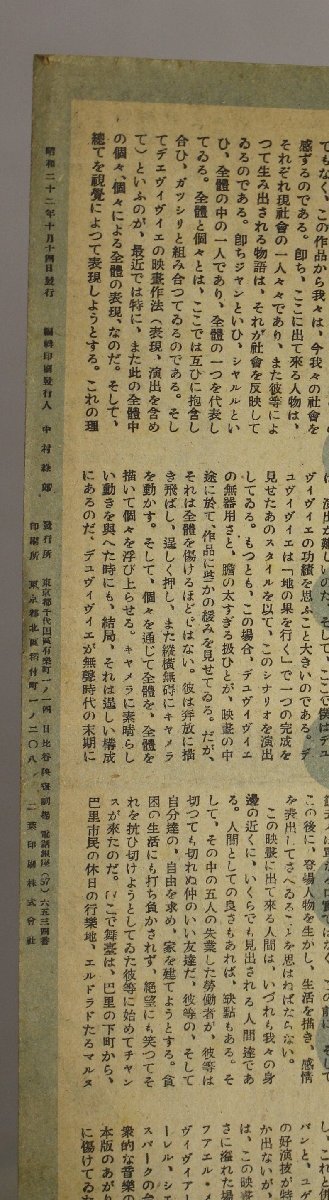 でもなく、この作品から我々は、今我々の社會を
感ずるのである。卽ち、ここに出て來る人物は、
それぞれ現社會の一人々々であり、また彼等によ
つて生み出される物語は、それが社會を反映して
ゐるのである。卽ちジャンといひ、シャルルとい
ひ、全體の中の一人であり、全體の一つを代表し
てゐる。全體と個々とは、ここでは互ひに抱含し
合ひ、ガッシリと組み合つてゐるのである。そし
てデュヴィヴィエの映畫作法(表現、演出を含め
て)といふのが、最近では特に、また此の全體中
の個々、個々による全體の表現、なのだ。そして、
總てを視覺によつて表現しようとする。これの理
は、演出が難しいのだ。そして、ここで僕はデュ
ヴィヴィエの功績を思ふこと大きいのである。デ
ュヴィヴィエは「地の果を行く」で一つの完成を
見せたあのスタイルを以て、このシナリオを演出
してゐる。もつとも、この場合、デュヴィヴィエ
の無器用さと、膽の太すぎる扱ひとが、映畫の中
途に於て、作品に些かの緩みを見せてゐる。だが、
それは全體を傷けるほどではない。彼は奔放に描
き飛ばし、逞しく押し、また縱橫無碍にキャメラ
を動かす。そして、個々を通じて全體を、全體を
描いて個々を浮び上らせる。キャメラに素晴らし
い動きを與へた時にも、結局、それは逞しい構成
にあるのだ、デュヴィヴィエが無聲時代の末期に
この後に、登場人物を生かし、生活を描き、感情
を表出してさへゐることを思はねばならない。
この映畫に出て來る人間は、いづれも我々の身
邊の近くに、いくらでも見出される人間達であ
る。人間としての良さもあれば、缺點もある。そ
して、その中の五人の失業した勞働者が、彼等は
切つても切れぬ仲のいい友達だ、彼等の、そして
自分達の、自由を求め、家を建てようとする。貧
困の生活にも打ち負かされず、絕望にも笑つてそ
れを抗ひ切けようとしてゐた彼等に始めてチャン
スが來たのだ。ここで舞臺は、巴里の下町から、
巴里市民の休日の行樂地、エルドラドたるマルヌ
し、これ
バンと、ユゲ
の好演技が特
か出ないが、
は、この映畫
さに溢れた場
フアエル・
ヴィヴィアー
ーレル、シエ
スパークの台
衆的な音樂の
本版のあがり
に傷けてゐた
昭和二十二年十月十四日發行
編輯印刷發行人 中村
發行所 東京都千代田區有樂町一ノ一四 日比谷映畫劇場 電話銀座(57)六五三四番
印刷所 東京都北區稻付町一ノ二〇八 二葉印刷株式會社